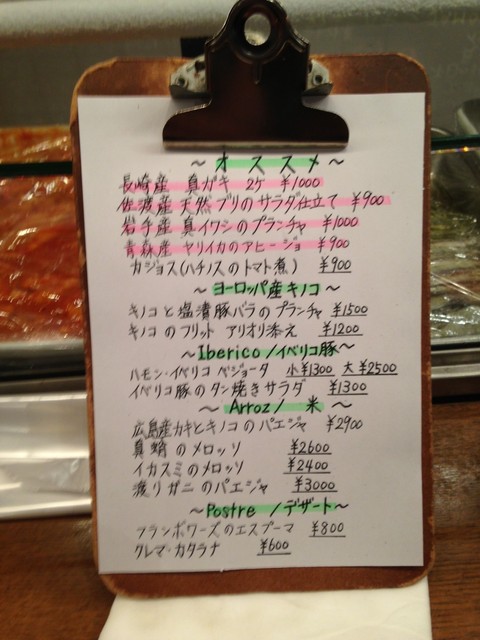 ～オススメ～
長崎産 真ガキ 2ケ ¥1000
佐渡産 天然ブリのサラダ仕立て ¥900
岩手産 真イワシのプランチャ ¥1000
青森産 ヤリイカのアヒージョ ¥900
カジョス(ハチノスのトマト煮) ¥900
～ヨーロッパ産キノコ～
キノコと塩漬豚バラのプランチャ ¥1500
キノコのフリット アリオリ添え ¥1200
～Iberico/イベリコ豚～
ハモン・イベリコ ベジョータ 小¥1300 大¥2500
イベリコ豚のタン焼きサラダ ¥1300
～Arroz/米～
広島産カキとキノコのパエジャ ¥2900
真蛸のメロッソ ¥2600
イカスミのメロッソ ¥2400
渡りガニのパエジャ ¥3000
～Postre/デザート～
フランボワーズのエスプーマ ¥800
クレマ・カタラナ ¥600